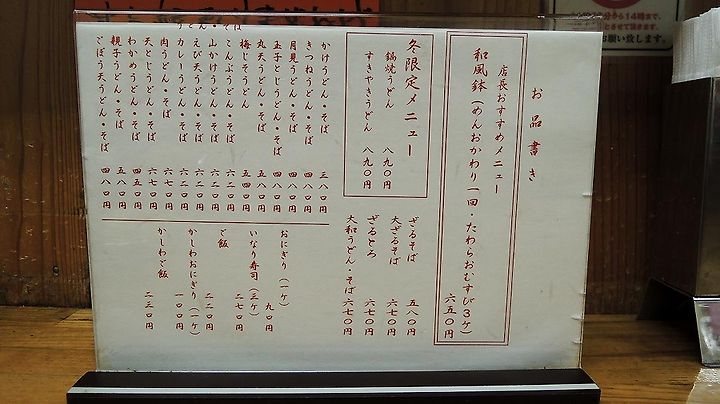 お品書き
店長おすすめメニュー
和風鉢(めんおかわり一回・たわらおむすび3ケ) 六五〇円
冬限定メニュー
鍋焼うどん 八九〇円
すきやきうどん 八九〇円
ざるそば 五八〇円
大ざるそば 六七〇円
ざるとろ 六七〇円
大和うどん・そば 六七〇円
かけうどん・そば 三八〇円
きつねうどん・そば 四八〇円
月見うどん・そば 四八〇円
玉子とじうどん・そば 四八〇円
丸天うどん・そば 五八〇円
梅じそうどん 五四〇円
こんぶうどん・そば 六二〇円
山かけうどん・そば 六二〇円
えび天うどん・そば 六二〇円
カレーうどん・そば 六二〇円
肉うどん・そば 六七〇円
天とじうどん・そば 六七〇円
わかめうどん・そば 四五〇円
親子うどん・そば 五八〇円
ごぼう天うどん・そば 四八〇円
おにぎり(一ケ) 九〇円
いなり寿司(三ケ) 二七〇円
ご飯 二二〇円
かしわおにぎり(一ケ) 一〇〇円
かしわご飯 二三〇円